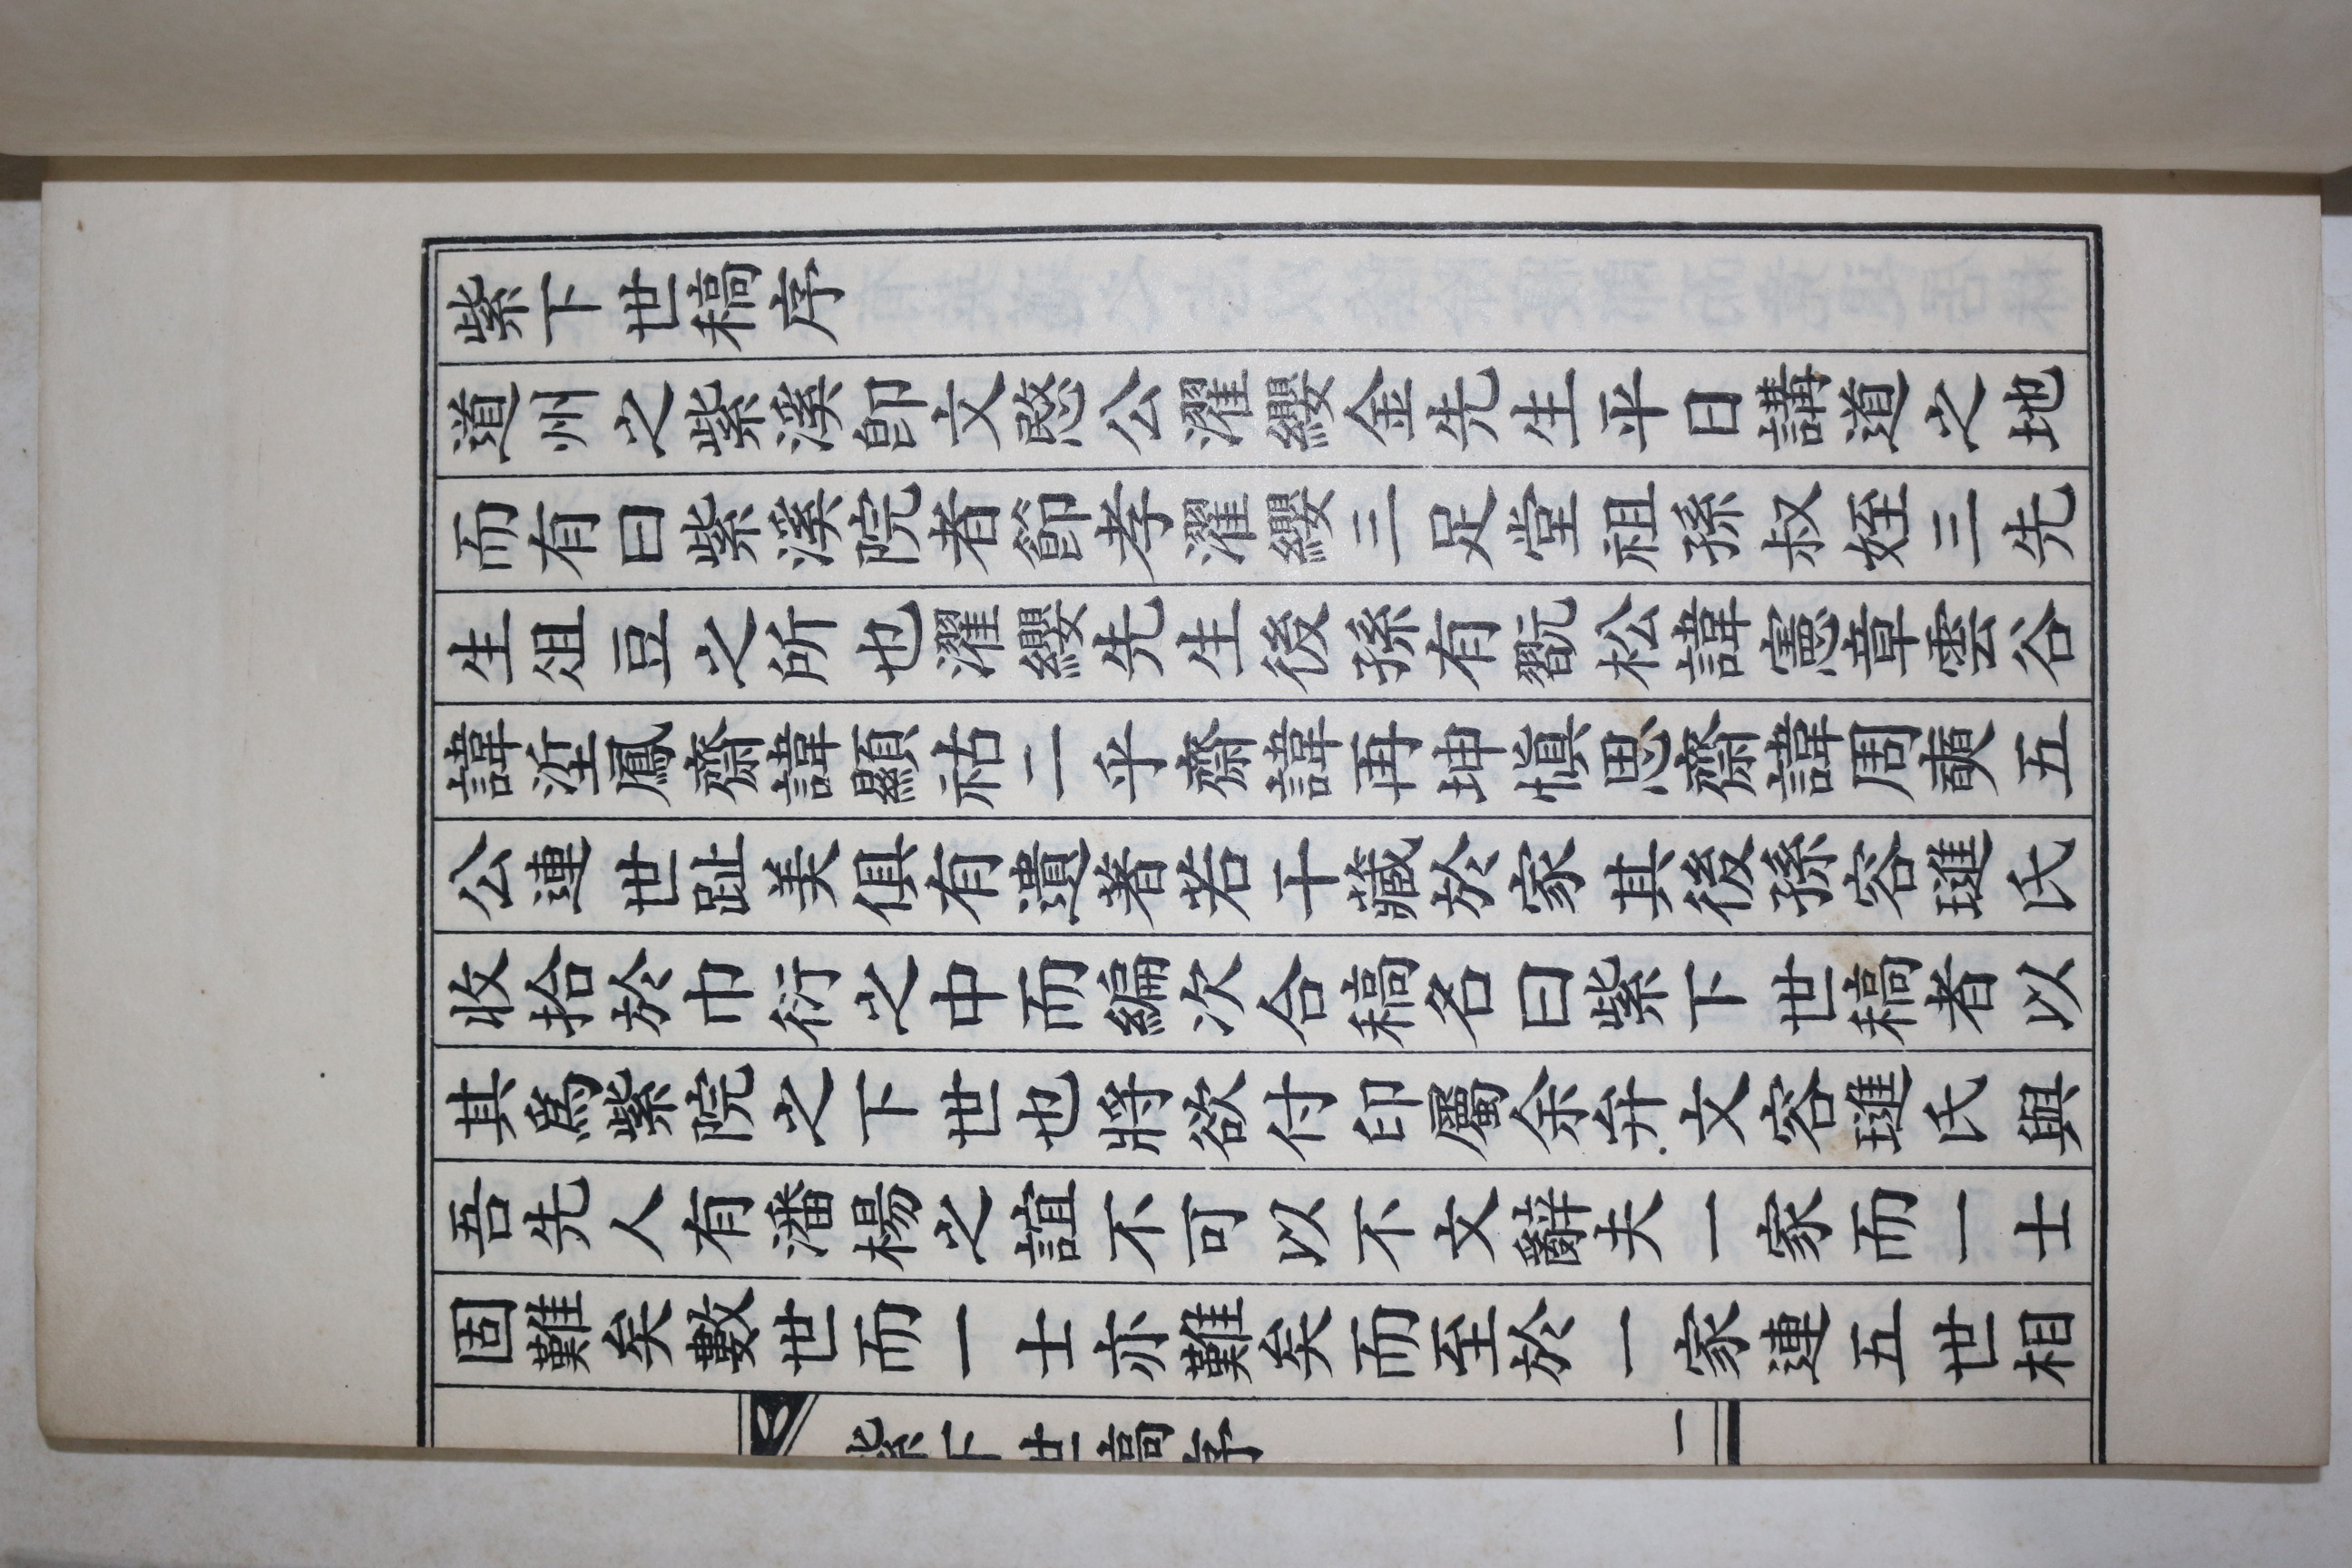 紫下世稿序
道州之紫溪卽文愍公濯纓金先生平日講道之地
而有曰紫溪院者節孝濯纓三足堂祖孫叔姪三先
生俎豆之所也濯纓先生後孫有翫松諱憲章雲谷
諱㘶鳳齋諱顯祜二乎齋諱再坤愼思齋諱周奭五
公連世趾美俱有遺著若干藏於家其後孫容璡氏
收拾於巾衍之中而編次合稿名曰紫下世稿者以
其爲紫院之下世也將欲付印屬余弁文容璡氏與
吾先人有潘楊之誼不可以不文辭夫一家而一士
固難矣數世而一士亦難矣而至於一家連五世相
紫下世稿序
一